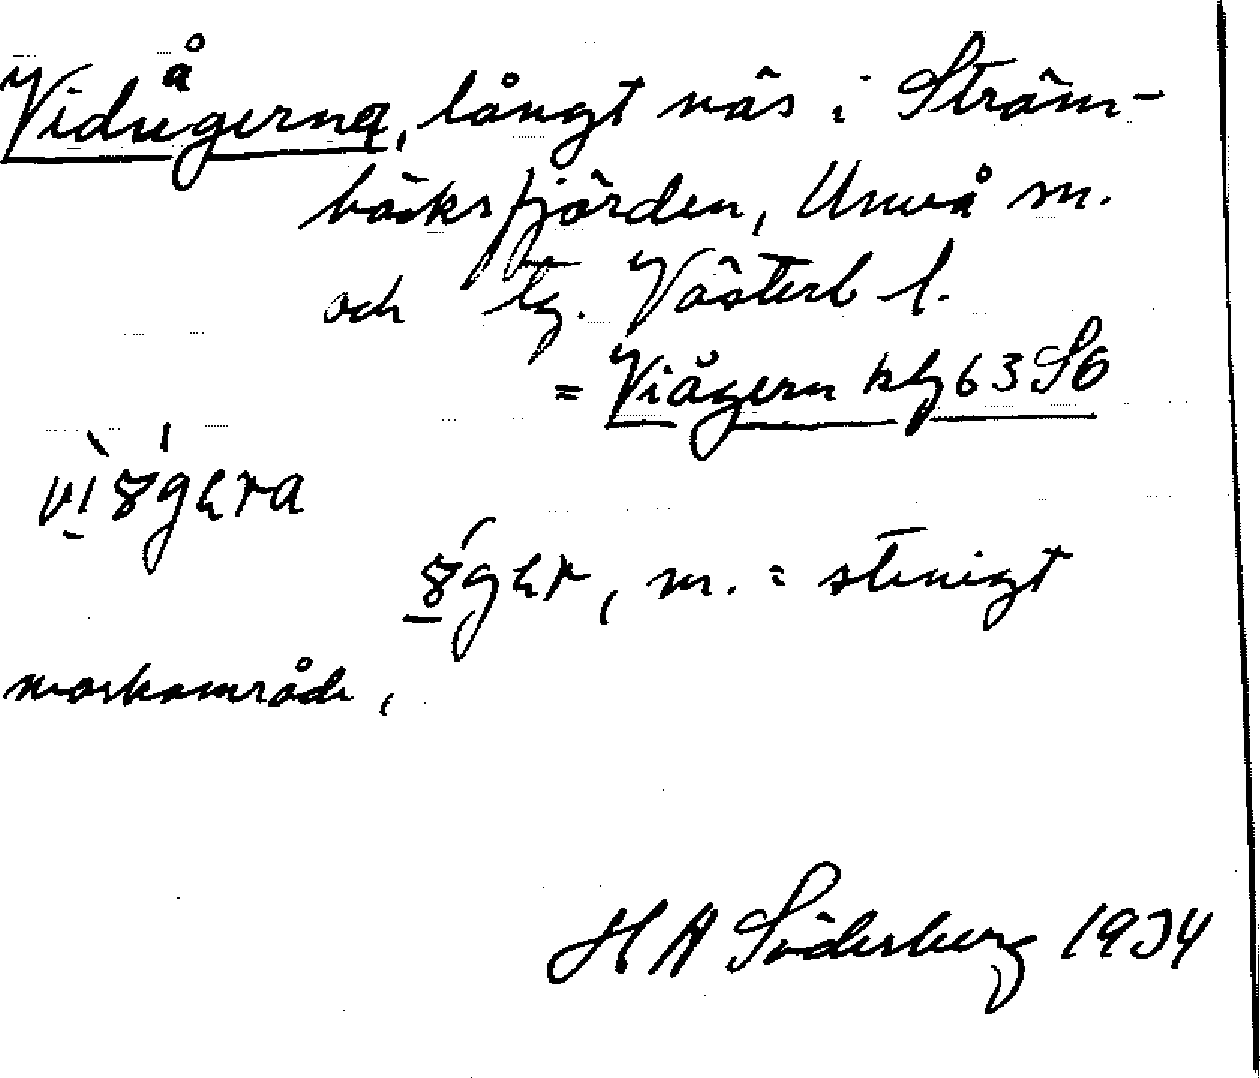 Vidågerna, långt näs i Ström-
bäcksfjärden, Umeå sn.
och tg. Västerb l.
= Viågern kbl 63 S6
vi 8gɩra
8gɩr, m. = stenigt
markområde,
H A Söderberg 1934